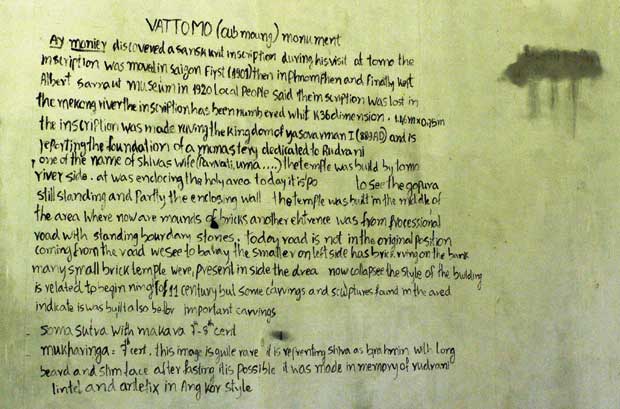 VATTOMO (cub moung) monument
Ay monier discovered a sanskrit inscription during his visit at tomo the
inscription was moved in saigon first (1901) then in phnomphen and finally kept
Albert sarraut museum in 1920 local people said the inscription was lost in
the mekong river the inscription has been numbered whit K36 dimension. 1.46m x 0.75m
the inscription was made ruving the kingdom of yasovarman I (889 AD) and is
reporting the foundation of a monastery dedicated to Rudrani
one of the name of shivas wife (Parvati, uma....) the temple was build by tomo
river side. at was encloсing the holy area today it is po to see the gopura
still standing and partly the enclosing wall the temple was built in the middle of
the area where now are mounds of bricks another entrence was from processional
road with standing bourdary stones. today road is not in the original position
coming from the road we see to baray the smaller on left side has brick rving on the bank
many small brick temple were, present in side the area now collapse the style of the building
is related to begin ning of 11 century but some carvings and sculptures found in the area
indicate is was built also before important carvings
- soma sutva with makava 7th-8th cent
- mukhavinga = 7th cent. this image is quite rare it is representing shiva as brahmin with long
beard and slim face after fasting it is possible it was made in memory of rudrani
lintel and antefix in Angkor style